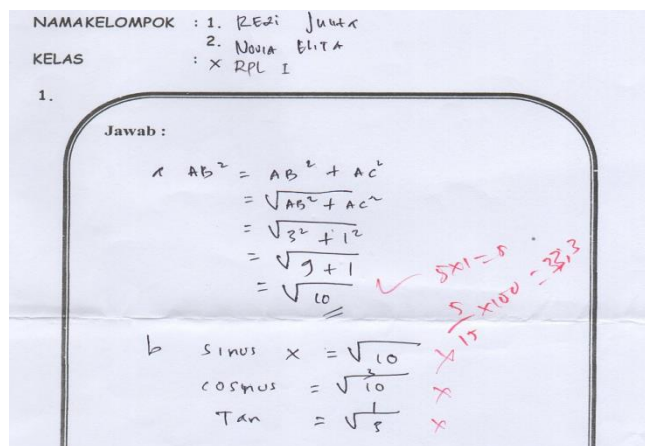 NAMA KELOMPOK : 1. REZi Junta
2. NOVIA ELITA
KELAS : X RPL I
1.
Jawab :
AB² = AB² + AC²
= √AB² + AC²
= √3² + 1²
= √9 + 1
= √10 ✓
5x1=5
5/15 x100 = 33,3
b sinus x = √10 ×
cosinus = √10 ×
Tan = ×